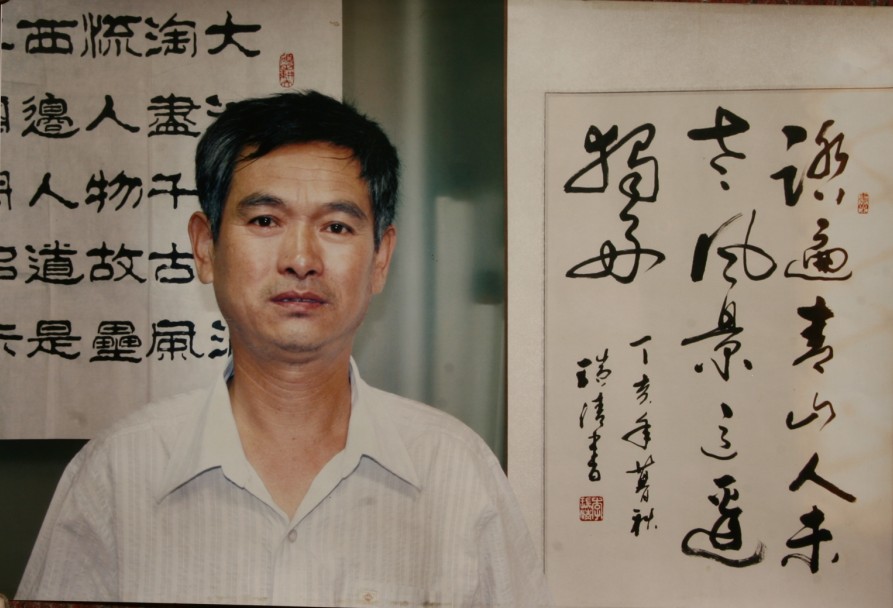 大
淘盡千古風
流人物故壘
西邊人道是
踏遍青山人未
老风景这邊
獨好
丁亥年暮秋
清書